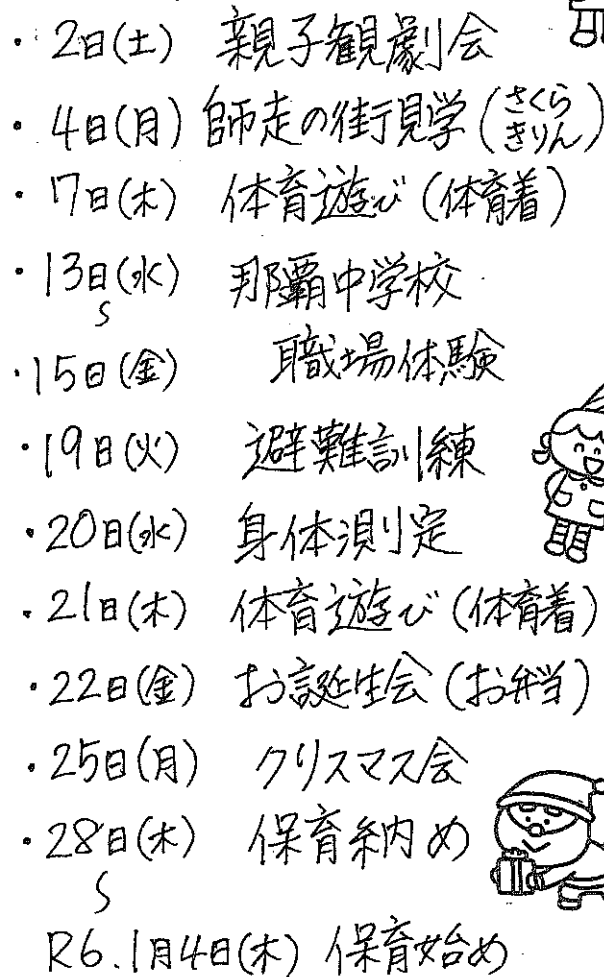 ・2日(土) 親子観劇会
・4日(月) 師走の街見学(さくら
きりん)
・7日(木) 体育遊び(体育着)
・13日(水) 那覇中学校
〜
・15日(金) 職場体験
・19日(火) 避難訓練
・20日(水) 身体測定
・21日(木) 体育遊び(体育着)
・22日(金) お誕生会(お弁当)
・25日(月) クリスマス会
・28日(木) 保育納め
〜
R6.1月4日(木) 保育始め